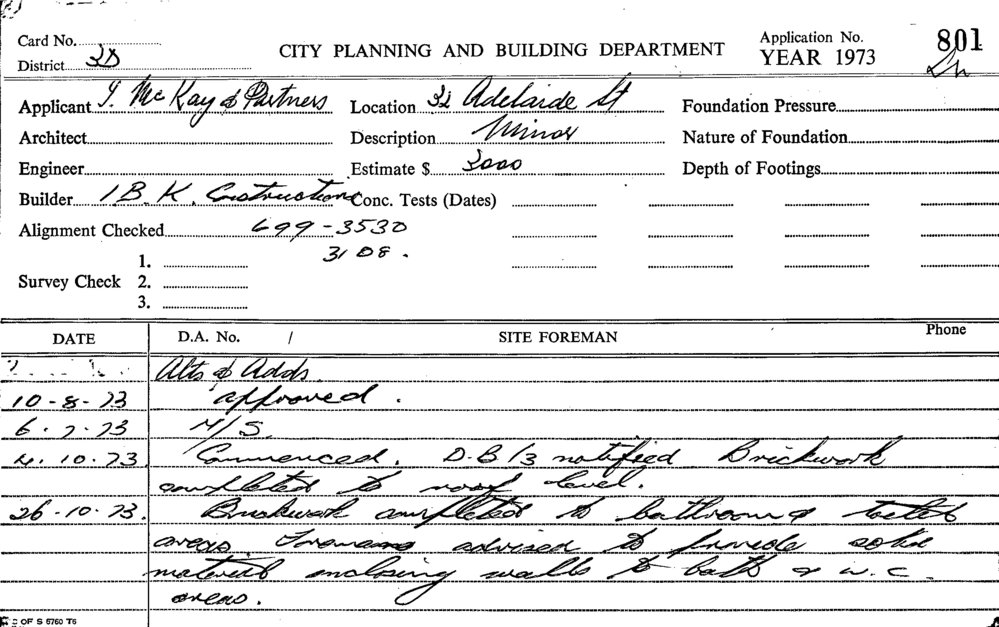 Card No.
District 3D
CITY PLANNING AND BUILDING DEPARTMENT
Application No. 801
YEAR 1973
Applicant J. McKay & Partners
Location 32 Adelaide St
Foundation Pressure
Architect
Description Minor
Nature of Foundation
Engineer
Estimate $ 3000
Depth of Footings
Builder I.B.K. Constructions
Conc. Tests (Dates)
Alignment Checked 699-3530
3108.
Survey Check
1.
2.
3.
DATE D.A. No. / SITE FOREMAN Phone
Alts & Adds
10-8-73 approved.
6.7.73 N/S.
4.10.73 Commenced. D.B/3 notified Brickwork
completed to roof level.
26-10-73. Brickwork completed to bathroom & toilet
areas. advised to provide solid
material enclosing walls to bath & w.c.
areas.
OF S 6760 T6